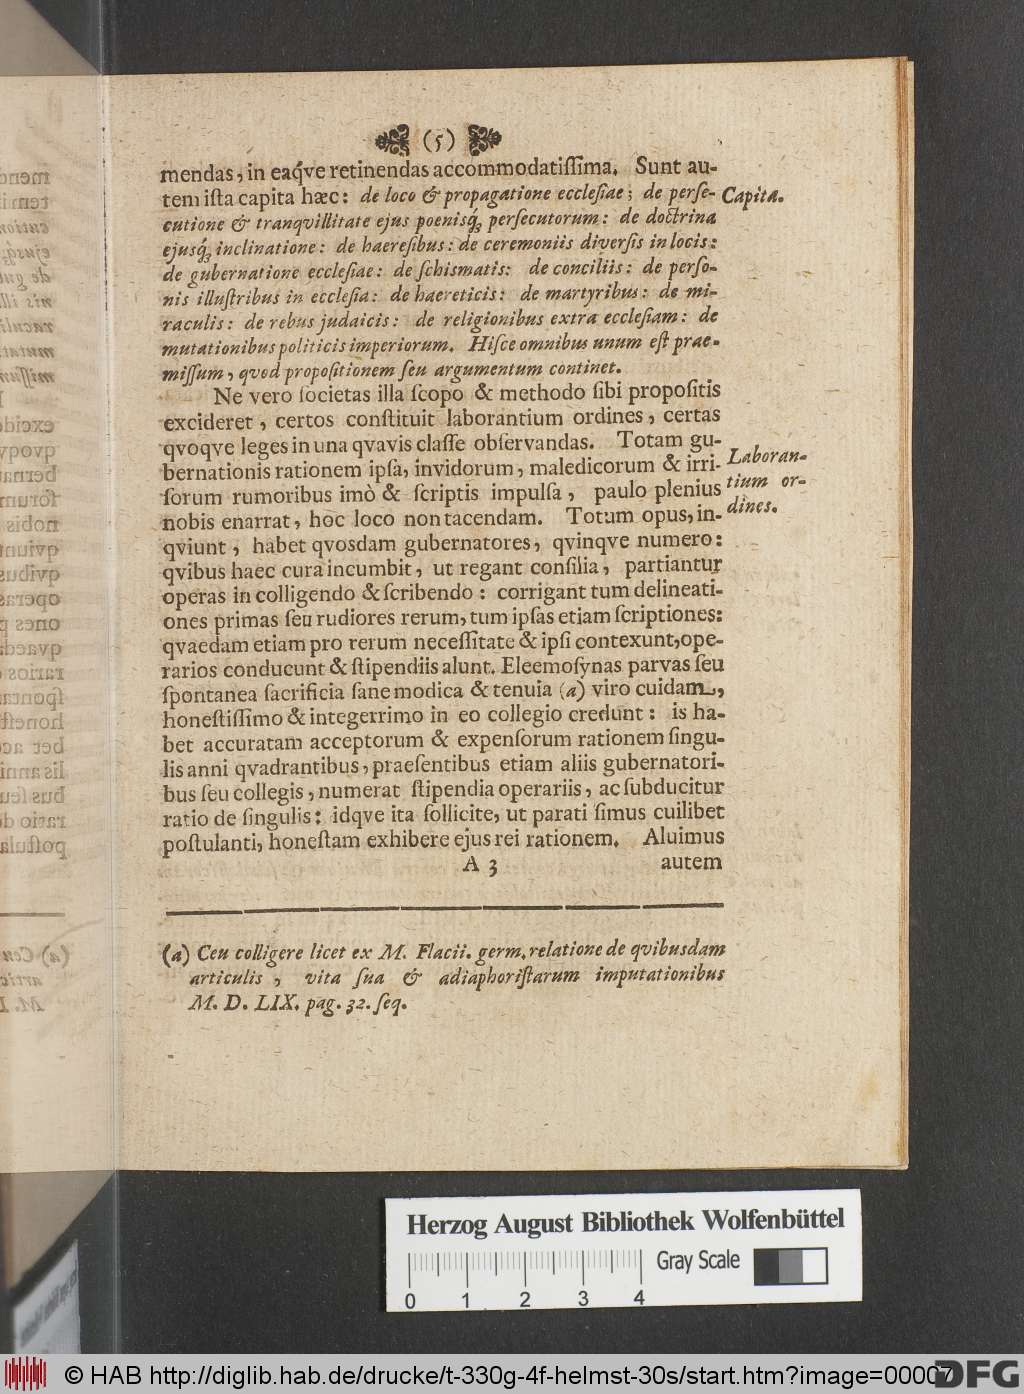 (5)
mendas, in eaq́ve retinendas accommodatiſſima. Sunt au-
tem iſta capita hæc: de loco & propagatione eccleſiae; de perſe-
Capita.
cutione & tranqvillitate ejus poenisq́; perſecutorum: de doctrina
ejusq́; inclinatione: de haereſibus: de ceremoniis diverſis in locis:
de gubernatione eccleſiae: de ſchismatis: de conciliis: de perſo-
nis illuſtribus in eccleſia: de haereticis: de martyribus: de mi-
raculis: de rebus judaicis: de religionibus extra eccleſiam: de
mutationibus politicis imperiorum. Hiſce omnibus unum eſt prae-
miſſum, qvod propoſitionem ſeu argumentum continet.
Ne vero ſocietas illa ſcopo & methodo ſibi propoſitis
excideret, certos conſtituit laborantium ordines, certas
qvoqve leges in una qvavis claſſe obſervandas. Totam gu-
bernationis rationem ipſa, invidorum, maledicorum & irri-
Laboran-
tium or-
dines.
ſorum rumoribus imò & ſcriptis impulſa, paulo plenius
nobis enarrat, hoc loco non tacendam. Totum opus, in-
qviunt, habet qvosdam gubernatores, qvinqve numero:
qvibus haec cura incumbit, ut regant conſilia, partiantur
operas in colligendo & ſcribendo: corrigant tum delineati-
ones primas ſeu rudiores rerum, tum ipſas etiam ſcriptiones:
qvaedam etiam pro rerum neceſſitate & ipſi contexunt, ope-
rarios conducunt & ſtipendiis alunt. Eleemoſynas parvas ſeu
ſpontanea ſacrificia ſane modica & tenuia (a) viro cuidam,
honeſtiſſimo & integerrimo in eo collegio credunt: is ha-
bet accuratam acceptorum & expenſorum rationem ſingu-
lis anni qvadrantibus, praeſentibus etiam aliis gubernatori-
bus ſeu collegis, numerat ſtipendia operariis, ac ſubducitur
ratio de ſingulis: idqve ita ſollicite, ut parati ſimus cuilibet
poſtulanti, honeſtam exhibere ejus rei rationem. Aluimus
A 3 autem
(a) Ceu colligere licet ex M. Flacii. germ. relatione de qvibusdam
articulis, vita ſua & adiaphoriſtarum imputationibus
M. D. LIX. pag. 32. ſeq.
Herzog August Bibliothek Wolfenbüttel
Gray Scale
0 1 2 3 4
© HAB http://diglib.hab.de/drucke/t-330g-4f-helmst-30s/start.htm?image=00007
DFG